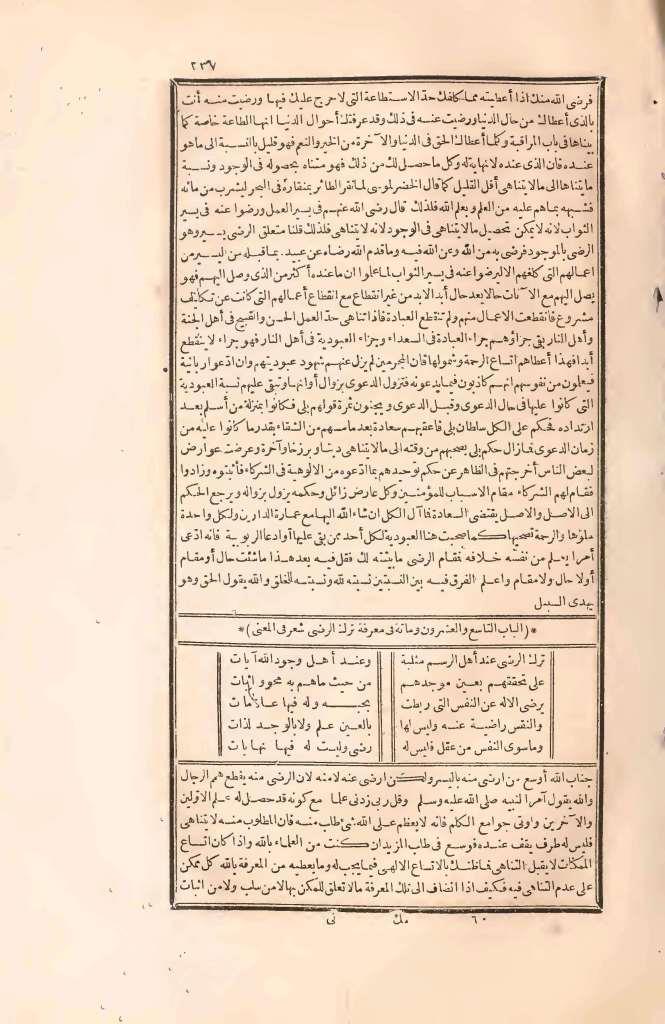 ٢٣٧
فرضى الله منك اذا أعطيته مما كلفك حد الاستطاعة التى لا حرج عليك فيها ورضيت منه أنت
بالذى أعطاك من حال الدنيا ورضيت عنه فى ذلك وقد عرفتك أحوال الدنيا انها الطاعة خاصة كما
بيناها فى باب المراقبة وكلما أعطاك الحق فى الدنيا والآخرة من الخير والنعم فهو قليل بالنسبة الى ما هو
عنده فان الذى عنده لا نهاية له وكل ما حصل لك من ذلك فهو متناه بحصوله فى الوجود ونسبة
ما يتناهى الى مالا يتناهى أقل القليل كما قال الخضر لموسى لما نقر الطائر بمنقاره فى البحر ليشرب من مائه
فشبهه بما هم عليه من العلم وبعلم الله فلذلك قال رضى الله عنهم فى يسير العمل ورضوا عنه فى يسير
الثواب لانه لا يمكن تحصيل مالا يتناهى فى الوجود لانه لا يتناهى فلذلك قلنا متعلق الرضى يسير وهو
الرضى بالموجود فرضى به من الله وعن الله فيه وما قدم الله رضاه عن عبيده بما قبله من اليسير من
اعمالهم التى كلفهم الا ليرضوا عنه فى يسير الثواب لما علموا ان ما عنده أكثر من الذى وصل اليهم فهو
يصل اليهم مع الآنات حالا بعد حال أبد الابد من غير انقطاع مع انقطاع أعمالهم التى كانت عن تكليف
مشروع فانقطعت الاعمال منهم ولم تنقطع العبادة فاذا تناهى حد العمل الحسن والقبيح فى أهل الجنة
وأهل النار بقى جزاؤهم جزاء العبادة فى السعداء وجزاء العبودية فى أهل النار فهو جزاء لا ينقطع
أبدا فهذا أعطاهم اتساع الرحمة وشمولها فان المجرمين لم يزل عنهم شهود عبوديتهم وان ادعوا ربانية
فيعلمون من نفوسهم انهم كاذبون فيما يدعونه فتزول الدعوى بزوال أوانها وتبقى عليهم نسبة العبودية
التى كانوا عليها فى حال الدعوى وقبل الدعوى ويجنون ثمرة قولهم بلى فكانوا بمنزلة من أسلم بعد
ارتداده فحكم على الكل سلطان بلى فاعقبهم سعادة بعد ما مسهم من الشقاء بقدر ما كانوا عليه من
زمان الدعوى فما زال حكم بلى يصحبهم من وقته الى مالا يتناهى دينا وبرزخا وآخرة وعرضت عوارض
لبعض الناس أخرجتهم فى الظاهر عن حكم توحيدهم بما ادعوه من الالوهة فى الشركاء فأثبتوه وزادوا
فقام لهم الشركاء مقام الاسباب للمؤمنين وكل عارض زائل وحكمه يزول بزواله ويرجع الحكم
الى الاصل والاصل يقتضى السعادة فما آل الكل ان شاء الله اليها مع عمارة الدارين ولكل واحدة
ملؤها والرحمة تصحبها كما صحبت هنا العبودية لكل أحد ممن بقى عليها أو ادعا الربوبية فانه ادعى
أمرا يعلم من نفسه خلافه فمقام الرضى ما بينته لك فقل فيه بعد هذا ما شئت حال أو مقام
أولا حال ولا مقام واعلم الفرق فيه بين النسبتين نسبته لله ونسبته للخلق والله يقول الحق وهو
يهدى السبيل
*(الباب التاسع والعشرون ومائة فى معرفة ترك الرضى شعر فى المعنى)*
ترك الرضى عند أهل الرسم مثلبة وعند أهل وجود الله آيات
على تحققهم بعين موجدهم من حيث ما هم به محو واثبات
يرضى الاله عن النفس التى ربطت بحبه وله فيها علامات
والنفس راضية عنه وليس لها بالعين علم ولا بالوجد لذات
وما سوى النفس من عقل فليس له رضى وليست له فيها نهايات
جناب الله أوسع من أرضى منه باليسير ولكن ارضى عنه لا منه لان الرضى منه يقطع همم الرجال
والله يقول آمرا لنبيه صلى الله عليه وسلم وقل رب زدنى علما مع كونه قد حصل له علم الاولين
والآخرين واوتى جوامع الكلم فانه لا يعظم على الله شئ طلب منه فان المطلوب منه لا يتناهى
فليس له طرف يقف عنده فوسع فى طلب المزيد ان كنت من العلماء بالله واذا كان اتساع
الممكنات لا يقبل التناهى فما ظنك بالاتساع الالهى فيما يجب له وما يعطيه من المعرفة بالله كل ممكن
على عدم التناهى فيه فكيف اذا انضاف الى تلك المعرفة ما لا تعلق للممكن بها لا من سلب ولا من اثبات
٦٠ مك نى